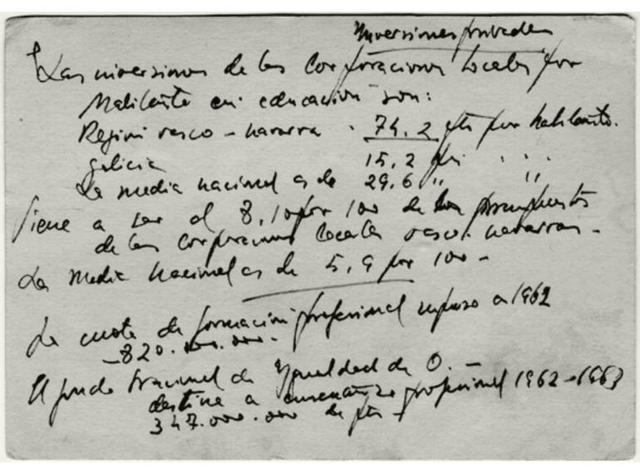 Inversiones privadas
Las inversiones de las Corporaciones locales por
habitante en educación son:
Región vasco-navarra . 74,2 pts por habitante.
galicia 15,2 " "
La media nacional es de 29,6 " "
Viene a ser el 8,10 por 100 de los presupuestos
de las corporaciones locales vasco-navarras-
La media nacional es de 5,9 por 100-
La cuota de formación profesional supuso a 1962
-820.000.000.
El fondo Nacional de Ygualdad de O.
destina a enseñanza profesional 1962-1963
347.000.000 de pts-